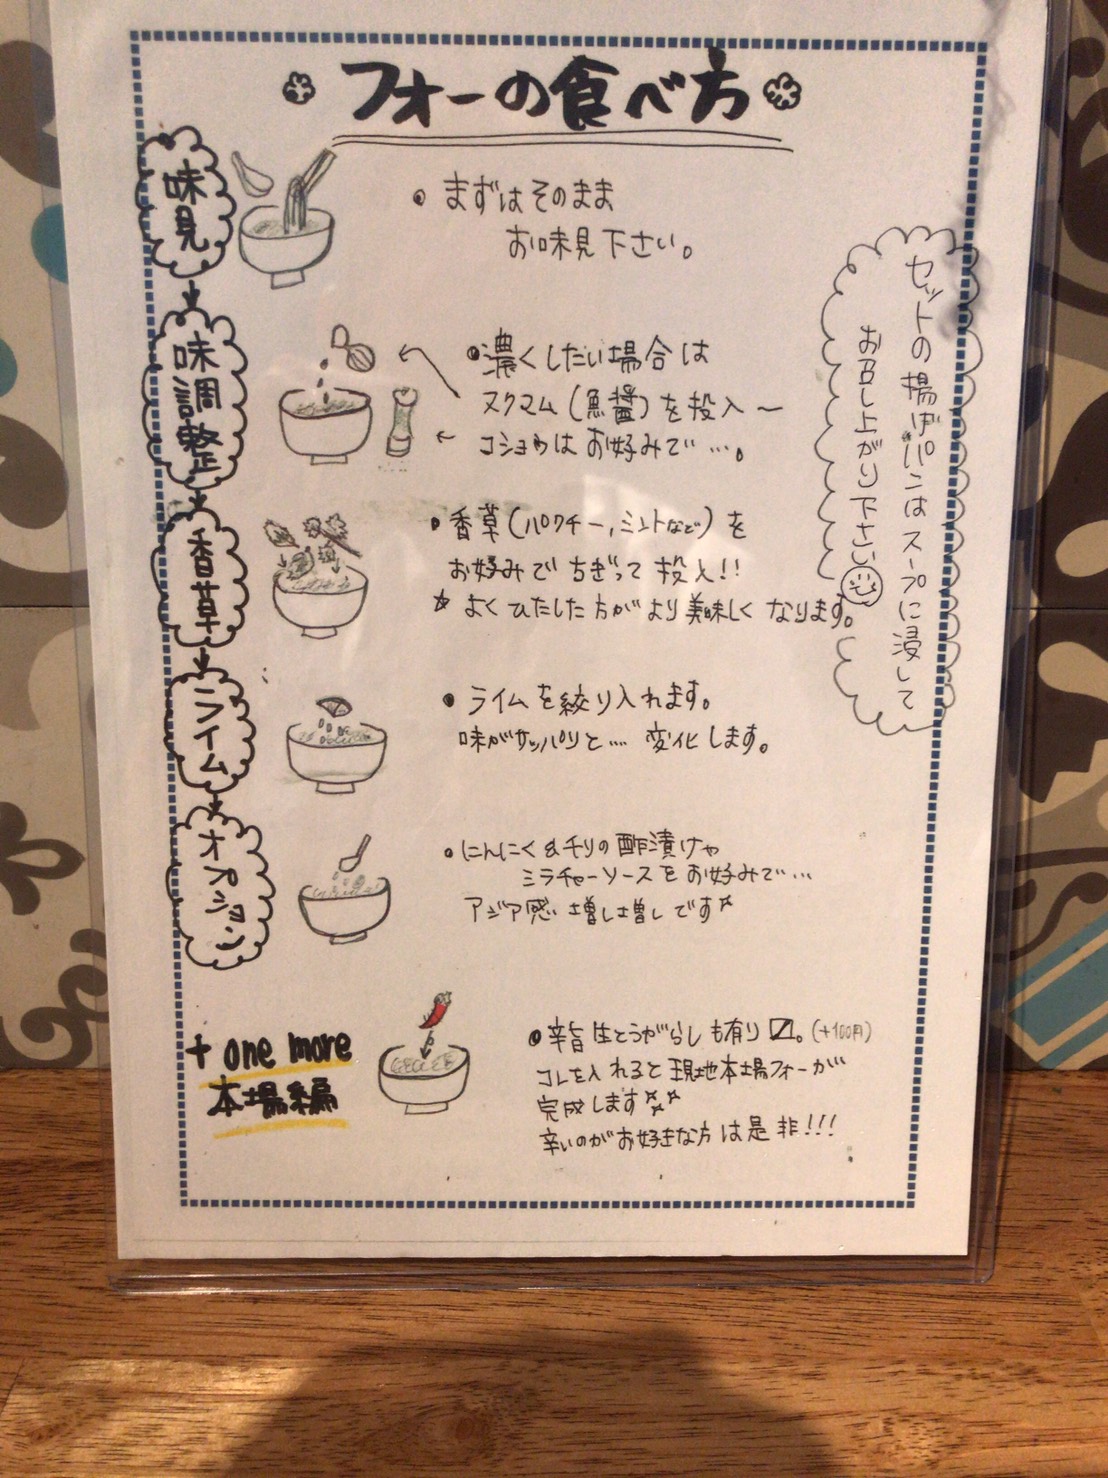 フォーの食べ方
味見
・まずはそのまま
お味見下さい。
味調整
・濃くしたい場合は
ヌクマム(魚醤)を投入〜
コショウはお好みで…。
香草
・香草(パクチー,ミントなど)を
お好みでちぎって投入!!
☆よくひたした方がより美味しくなります。
ライム
・ライムを絞り入れます。
味がサッパリと…変化します。
オプション
・にんにく&チリの酢漬けや
ミラチャーソースをお好みで…
アジア感増し増しです☆
+one more
本場編
・辛旨生とうがらしも有り〼。(+100円)
コレを入れると現地本場フォーが
完成します☆☆☆
辛いのがお好きな方は是非!!!
セットの揚げパンはスープに浸して
お召し上がり下さい☺